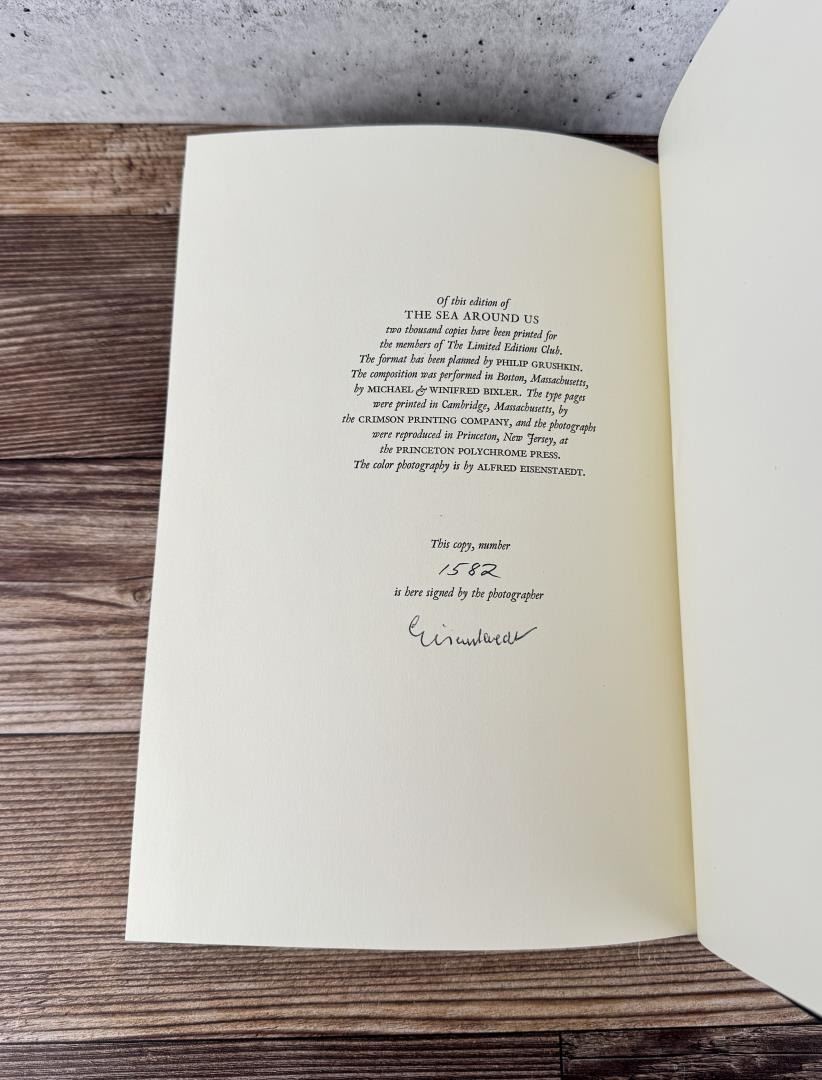 Of this edition of
THE SEA AROUND US
two thousand copies have been printed for
the members of The Limited Editions Club.
The format has been planned by PHILIP GRUSHKIN.
The composition was performed in Boston, Massachusetts,
by MICHAEL & WINIFRED BIXLER. The type pages
were printed in Cambridge, Massachusetts, by
the CRIMSON PRINTING COMPANY, and the photographs
were reproduced in Princeton, New Jersey, at
the PRINCETON POLYCHROME PRESS.
The color photography is by ALFRED EISENSTAEDT.
This copy, number
1582
is here signed by the photographer
Eisenstaedt